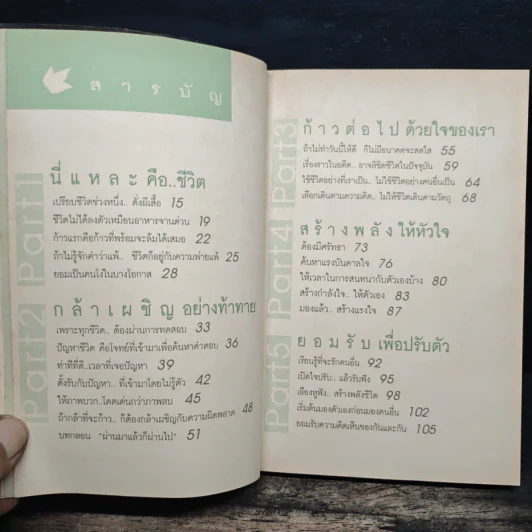 สารบัญ
Part1
นี่แหละคือ..ชีวิต
เปรียบชีวิตช่วงหนึ่ง.. ดั่งผีเสื้อ 15
ชีวิตไม่ได้ลงตัวเหมือนอาหารจานด่วน 19
ก้าวแรกคือก้าวที่พร้อมจะล้มได้เสมอ 22
ถ้าไม่รู้จักคำว่าแพ้.. ชีวิตก็อยู่กับความพ่ายแพ้ 25
ยอมเป็นคนโง่ในบางโอกาส 28
Part2
กล้าเผชิญ อย่างท้าทาย
เพราะทุกชีวิต.. ต้องผ่านการทดสอบ 33
ปัญหาชีวิต คือโจทย์ที่เข้ามาเพื่อค้นหาคำตอบ 36
ท่าทีที่ดี..เวลาที่เจอปัญหา 39
ตั้งรับกับปัญหา.. ที่เข้ามาโดยไม่รู้ตัว 42
ให้ภาพบวก..โดดเด่นกว่าภาพลบ 45
ถ้ากล้าที่จะก้าว.. ก็ต้องกล้าเผชิญกับความผิดพลาด 48
บทกลอน "ผ่านมาแล้วก็ผ่านไป" 51
Part3
ก้าวต่อไป ด้วยใจของเรา
ถ้าไม่ทำวันนี้ให้ดี ก็ไม่มีอนาคตจะสดใส 55
เรื่องราวในอดีต.. อาจลิขิตชีวิตในปัจจุบัน 59
ใช้ชีวิตอย่างที่เราเป็น.. ไม่ใช้ชีวิตอย่างคนอื่นเป็น 64
เลือกเดินตามความคิด.. ไม่ให้ชีวิตเดินตามวัตถุ 68
Part4
สร้างพลัง ให้หัวใจ
ต้องมีศรัทธา 73
ค้นหาแรงบันดาลใจ 76
ให้เวลาในการสนทนากับตัวเองบ้าง 80
สร้างกำลังใจ.. ให้ตัวเอง 83
มองแล้ว.. สร้างแรงใจ 87
Part5
ยอมรับ เพื่อปรับตัว
เรียนรู้ที่จะรักคนอื่น 92
เปิดใจปรับ.. แล้วรับฟัง 95
เอียงหูฟัง.. สร้างพลังชีวิต 98
เริ่มต้นมองตัวเองก่อนมองคนอื่น 102
ยอมรับความคิดเห็นของกันและกัน 105